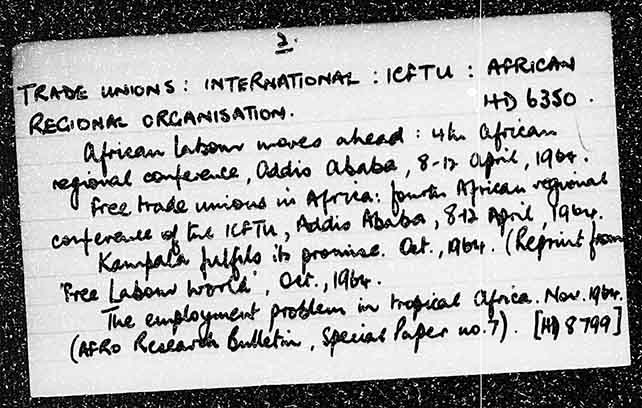 2.
TRADE UNIONS : INTERNATIONAL : ICFTU : AFRICAN
REGIONAL ORGANISATION. HD 6350.
African labour moves ahead : 4th African
regional conference, Addis Ababa, 8-12 April, 1964.
Free trade unions in Africa: fourth African regional
conference of the ICFTU, Addis Ababa, 8-12 April, 1964.
Kampala fulfils its promise. Oct., 1964. (Reprint from
'Free Labour World', Oct., 1964.
The employment problem in tropical Africa. Nov. 1964.
(AFRO Research Bulletin, Special Paper no.7). [HD 8799]